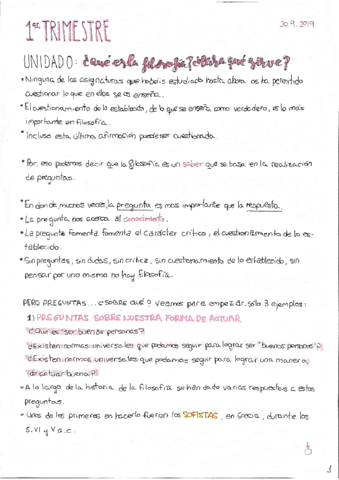 1er TRIMESTRE
20.9.2019
UNIDAD 0: ¿Qué es la filosofía? ¿Para qué sirve?
• Ninguna de las asignaturas que habéis estudiado hasta ahora os ha permitido
cuestionar lo que en ellas se os enseña.
• El cuestionamiento de lo establecido, de lo que se enseña como verdadero, es lo más
importante en filosofía.
• Incluso esta última afirmación puede ser cuestionada.
• Por, eso podemos decir que la filosofía es un saber que se basa en la realización
de preguntas.
• En donde, muchas veces, la pregunta es más importante que la respuesta.
• La pregunta nos acerca al conocimiento.
• La pregunta fomenta fomenta el carácter crítico, el cuestionamiento de lo es-
tablecido.
• Sin preguntas, sin dudas, sin crítica, sin cuestionamiento de lo establecido, sin
pensar por uno mismo no hay filosofía.
PERO PREGUNTAS... ¿SOBRE QUÉ? Veamos para empezar, sólo 3 ejemplos:
1) PREGUNTAS SOBRE NUESTRA FORMA DE ACTUAR
¿Qué es "ser buenas personas"?
¿Existen normas universales que podamos seguir para lograr ser "buenas personas"?
¿Existen normas universales que podamos seguir para lograr una manera
de actuar buena?
• A lo largo de la historia de la filosofía se han dado varias respuestas a estas
preguntas.
• Unos de los primeros en hacerlo fueron los SOFISTAS, en Grecia, durante los
S. VI y V a.C.
1